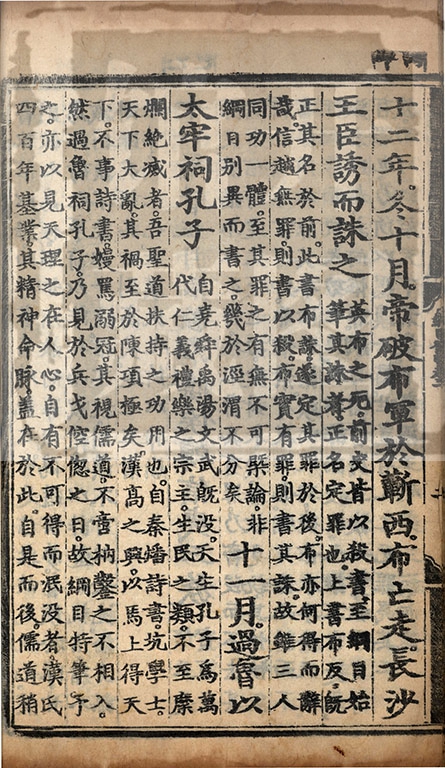 十二年。冬十月。帝破布軍於蘄西。布亡走。長沙
王臣誘而誅之
英布之死。前史皆以殺書。至綱目始
筆其誅。者正名定罪也。上書布反。既
正其名於前。此書布誅。遂定其罪於後。布亦何得而辭
哉。信越無罪。則書以殺。布實有罪。則書其誅。故雖三人
同功一體。至其罪之有無。不可槩論。非
綱目別異而書之。幾於涇渭不分矣
十一月。過魯以
太牢祠孔子
自堯舜禹湯文武既没。天生孔子爲萬
代仁義禮樂之宗主。生民之類。不至糜
爛絶滅者。吾聖道扶持之功用也。自秦燔詩書。坑學士。
天下大亂。其禍至於陳項極矣。漢高之興。以馬上得天
下。不事詩書。嫚罵溺冠。其視儒道。不啻枘鑿之不相入。
然過魯祠孔子。乃見於兵戈倥偬之日。故綱目特筆予
之。亦以見天理之在人心。自有不可得而泯没者。漢氏
四百年基業。其精神命脉。蓋在於此。自是而後。儒道稍